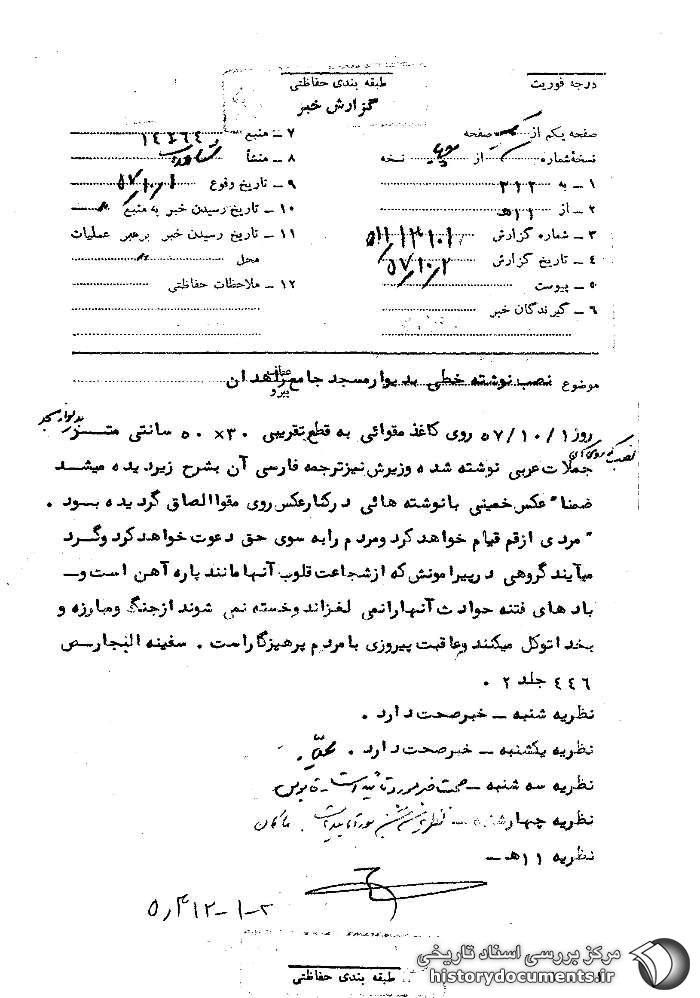 طبقه بندی حفاظتی
درجه فوریت
گزارش خبر
صفحه یکم از یک صفحه
نسخه شماره از نسخه
۱ ـ به ۳۱۲
۲ ـ از ۱۱ هـ
۳ ـ شماره گزارش
۴ ـ تاریخ گزارش ۵۷/۱۰/۲
۵ ـ پیوست
۶ ـ گیرندگان خبر
۷ ـ منبع ۱۴۴۶۴
۸ ـ منشأ
۹ ـ تاریخ وقوع ۵۷/۱۰/۱
۱۰ ـ تاریخ رسیدن خبر به منبع
۱۱ ـ تاریخ رسیدن خبر برهبر عملیات
محل
۱۲ ـ ملاحظات حفاظتی
موضوع نصب نوشته خطی بدیوار مسجد جامع زاهدان
عطف
پیرو
روز ۵۷/۱۰/۱ روی کاغذ مقوائی به قطع تقریبی ۳۰×۵۰ سانتی متر بدیوار مسجد
نصب
جملات عربی نوشته شده وزیرش نیز ترجمه فارسی آن بشرح زیر دیده میشد
ضمنا" عکس خمینی با نوشته هائی در کنار عکس روی مقوا الصاق گردیده بود .
" مردی از قم قیام خواهد کرد ومردم را به سوی حق دعوت خواهد کرد وگرد
میآیند گروهی در پیرامونش که از شجاعت قلوب آنها مانند پاره آهن است و ـ
باد های فتنه حوادث آنها رانمی لغزاند وخسته نمی شوند از جنگ ومبارزه و
بخدا توکل میکنند وعاقبت پیروزی با مردم پرهیزگار است . سفینه البحار ص
۴۴۶ جلد ۲ .
نظریه شنبه ـ خبر صحت دارد .
نظریه یکشنبه ـ خبر صحت دارد .
نظریه سه شنبه ـ صحت خبر مورد تائید است ـ قابوس
نظریه چهارشنبه ـ نظریه سه شنبه مورد تائید است . ماکان
نظریه ۱۱ هـ ـ
طبقه بندی حفاظتی
مرکز بررسی اسناد تاریخی
historydocuments.ir